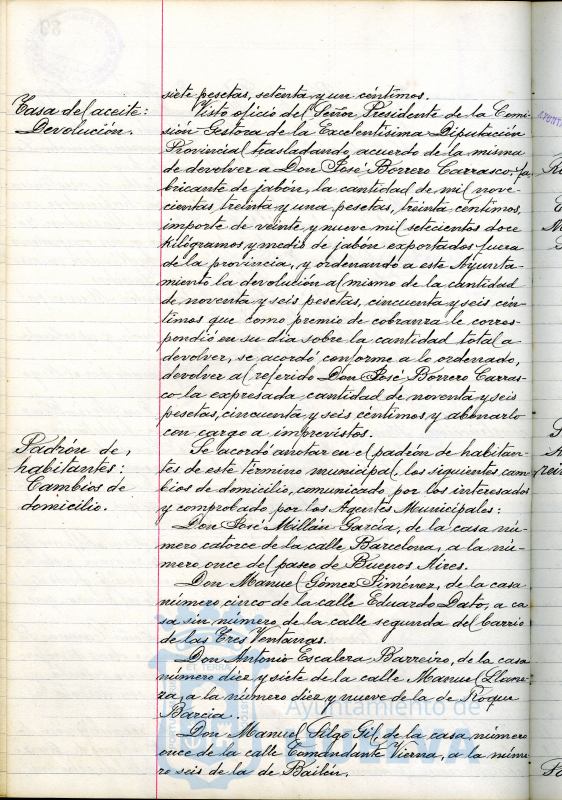 siete pesetas, setenta y un céntimos.
Tasa del aceite:
Devolución.
Visto oficio del Señor Presidente de la Comi-
sión Gestora de la Excelentísima Diputación
Provincial trasladando acuerdo de la misma
de devolver a Don José Borrero Carrasco, fa-
bricante de jabón, la cantidad de mil nove-
cientas treinta y una pesetas, treinta céntimos,
importe de veinte y nueve mil setecientos doce
kilógramos y medio de jabón exportados fuera
de la provincia, y ordenando a este Ayunta-
miento la devolución al mismo de la cantidad
de noventa y seis pesetas, cincuenta y seis cén-
timos que como premio de cobranza le corres-
pondió en su día sobre la cantidad total a
devolver, se acordó conforme a lo ordenado,
devolver al referido Don José Borrero Carras-
co la expresada cantidad de noventa y seis
pesetas, cincuenta y seis céntimos y abonarlo
con cargo a imprevistos.
Padrón de
habitantes:
Cambios de
domicilio.
Se acordó anotar en el padrón de habitan-
tes de este término municipal, los siguientes cam-
bios de domicilio, comunicado por los interesados
y comprobado por los Agentes Municipales:
Don José Millán García, de la casa nú-
mero catorce de la calle Barcelona, a la nú-
mero once del paseo de Buenos Aires.
Don Manuel Gómez Jiménez, de la casa
número cinco de la calle Eduardo Dato, a ca-
sa sin número de la calle segunda del barrio
de las Tres Ventanas.
Don Antonio Escalera Barreiro, de la casa
número diez y siete de la calle Manuel Llane-
za, a la número diez y nueve de la de Roque
Barcia.
Don Manuel Silgo Gil, de la casa número
once de la calle Comandante Vierna, a la núme-
ro seis de la de Bailén.
Ayuntamiento de